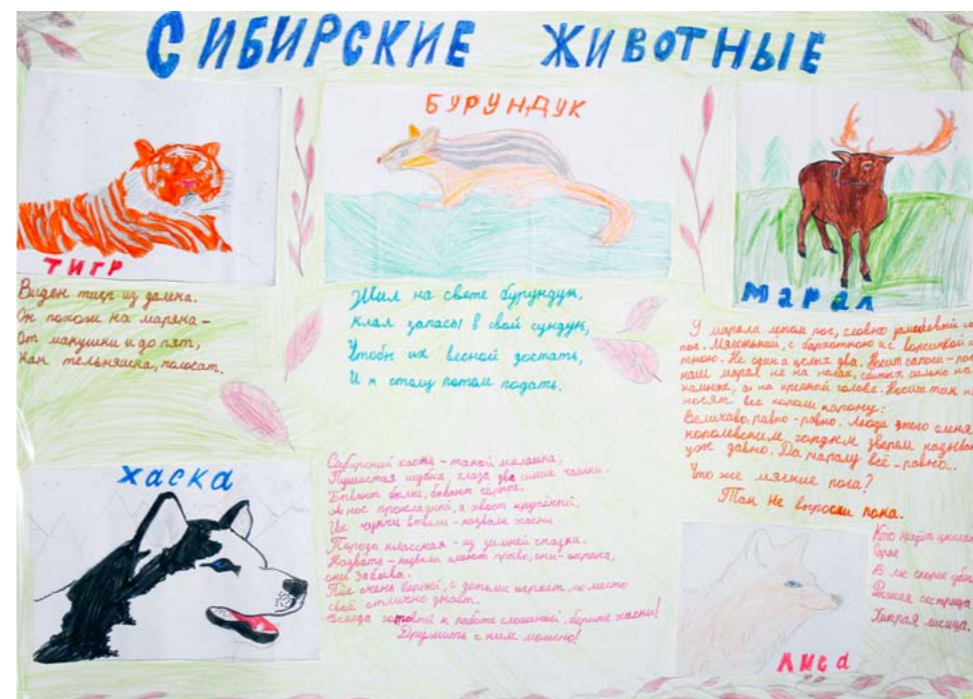 СИБИРСКИЕ ЖИВОТНЫЕ
ТИГР
Виден тигр из далека.
Он похож на моряка –
От макушки и до пят,
Как тельняшка, полосат.
БУРУНДУК
Жил на свете бурундук,
Клал запасы в свой сундук,
Чтобы их весной достать,
И к столу потом подать.
МАРАЛ
У марала летом рог, словно
рог. Мягонький, с бархотною и с ворсинкой
тною. Не один а целых два. Носит сапоги –
наш марал не на ногах, сбитых сильно на
камнях, а на крепкой голове. Носит так
носят все короли карону:
Величаво, равно – равно. Люди этого оленя
королевским, гордым зверем
уж давно. Да маралу всё – равно...
Что же мягкие рога?
Так не выросли пока.
ХАСКА
Сибирский хаски – такой милашка,
Пушистая шубка, глаза два синих чашки.
Бывают белые, бывают чёрные.
А нос прохладный, а хвост кручённый.
Их чукчи вывели – назвали хаски
Порода классная – из зимней сказки.
Назвать – имеют право, они – охрана,
они забава.
Пёс очень верный, с детьми играет, но место
своё отлично знает.
Всегда готовы к работе сложной, берите хаски!
Дружить с ним можно!
ЛИСа
Кто крадёт цыплят
В лес скорее
Рыжая сестрица
Хитрая лисица.